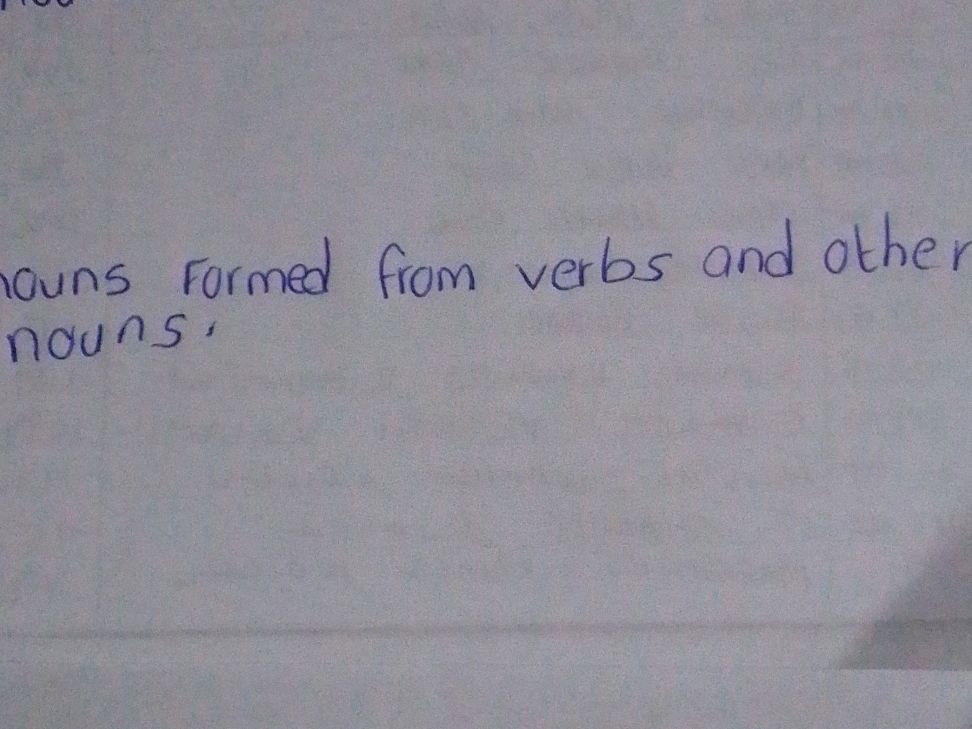 nouns formed from verbs and other
nouns.